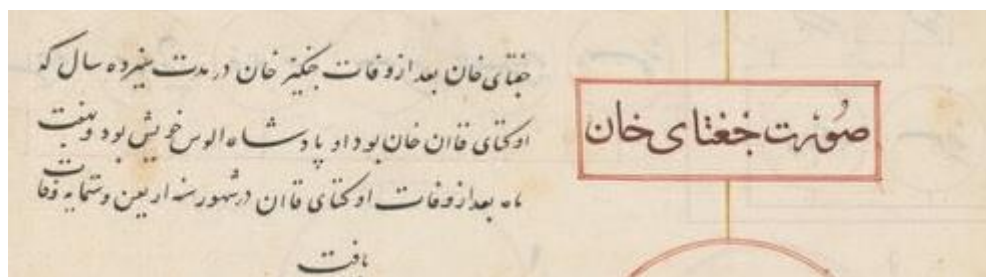 صورت جغتای خان
جغتای خان بعد از وفات چنگیز خان در مدت سیزده سال که
اوکتای قاآن خان بود او پادشاه الوس خویش بود و هفت
ماه بعد از وفات اوکتای قاآن در شهور سنه اربعین و ستمایه وفات
یافت